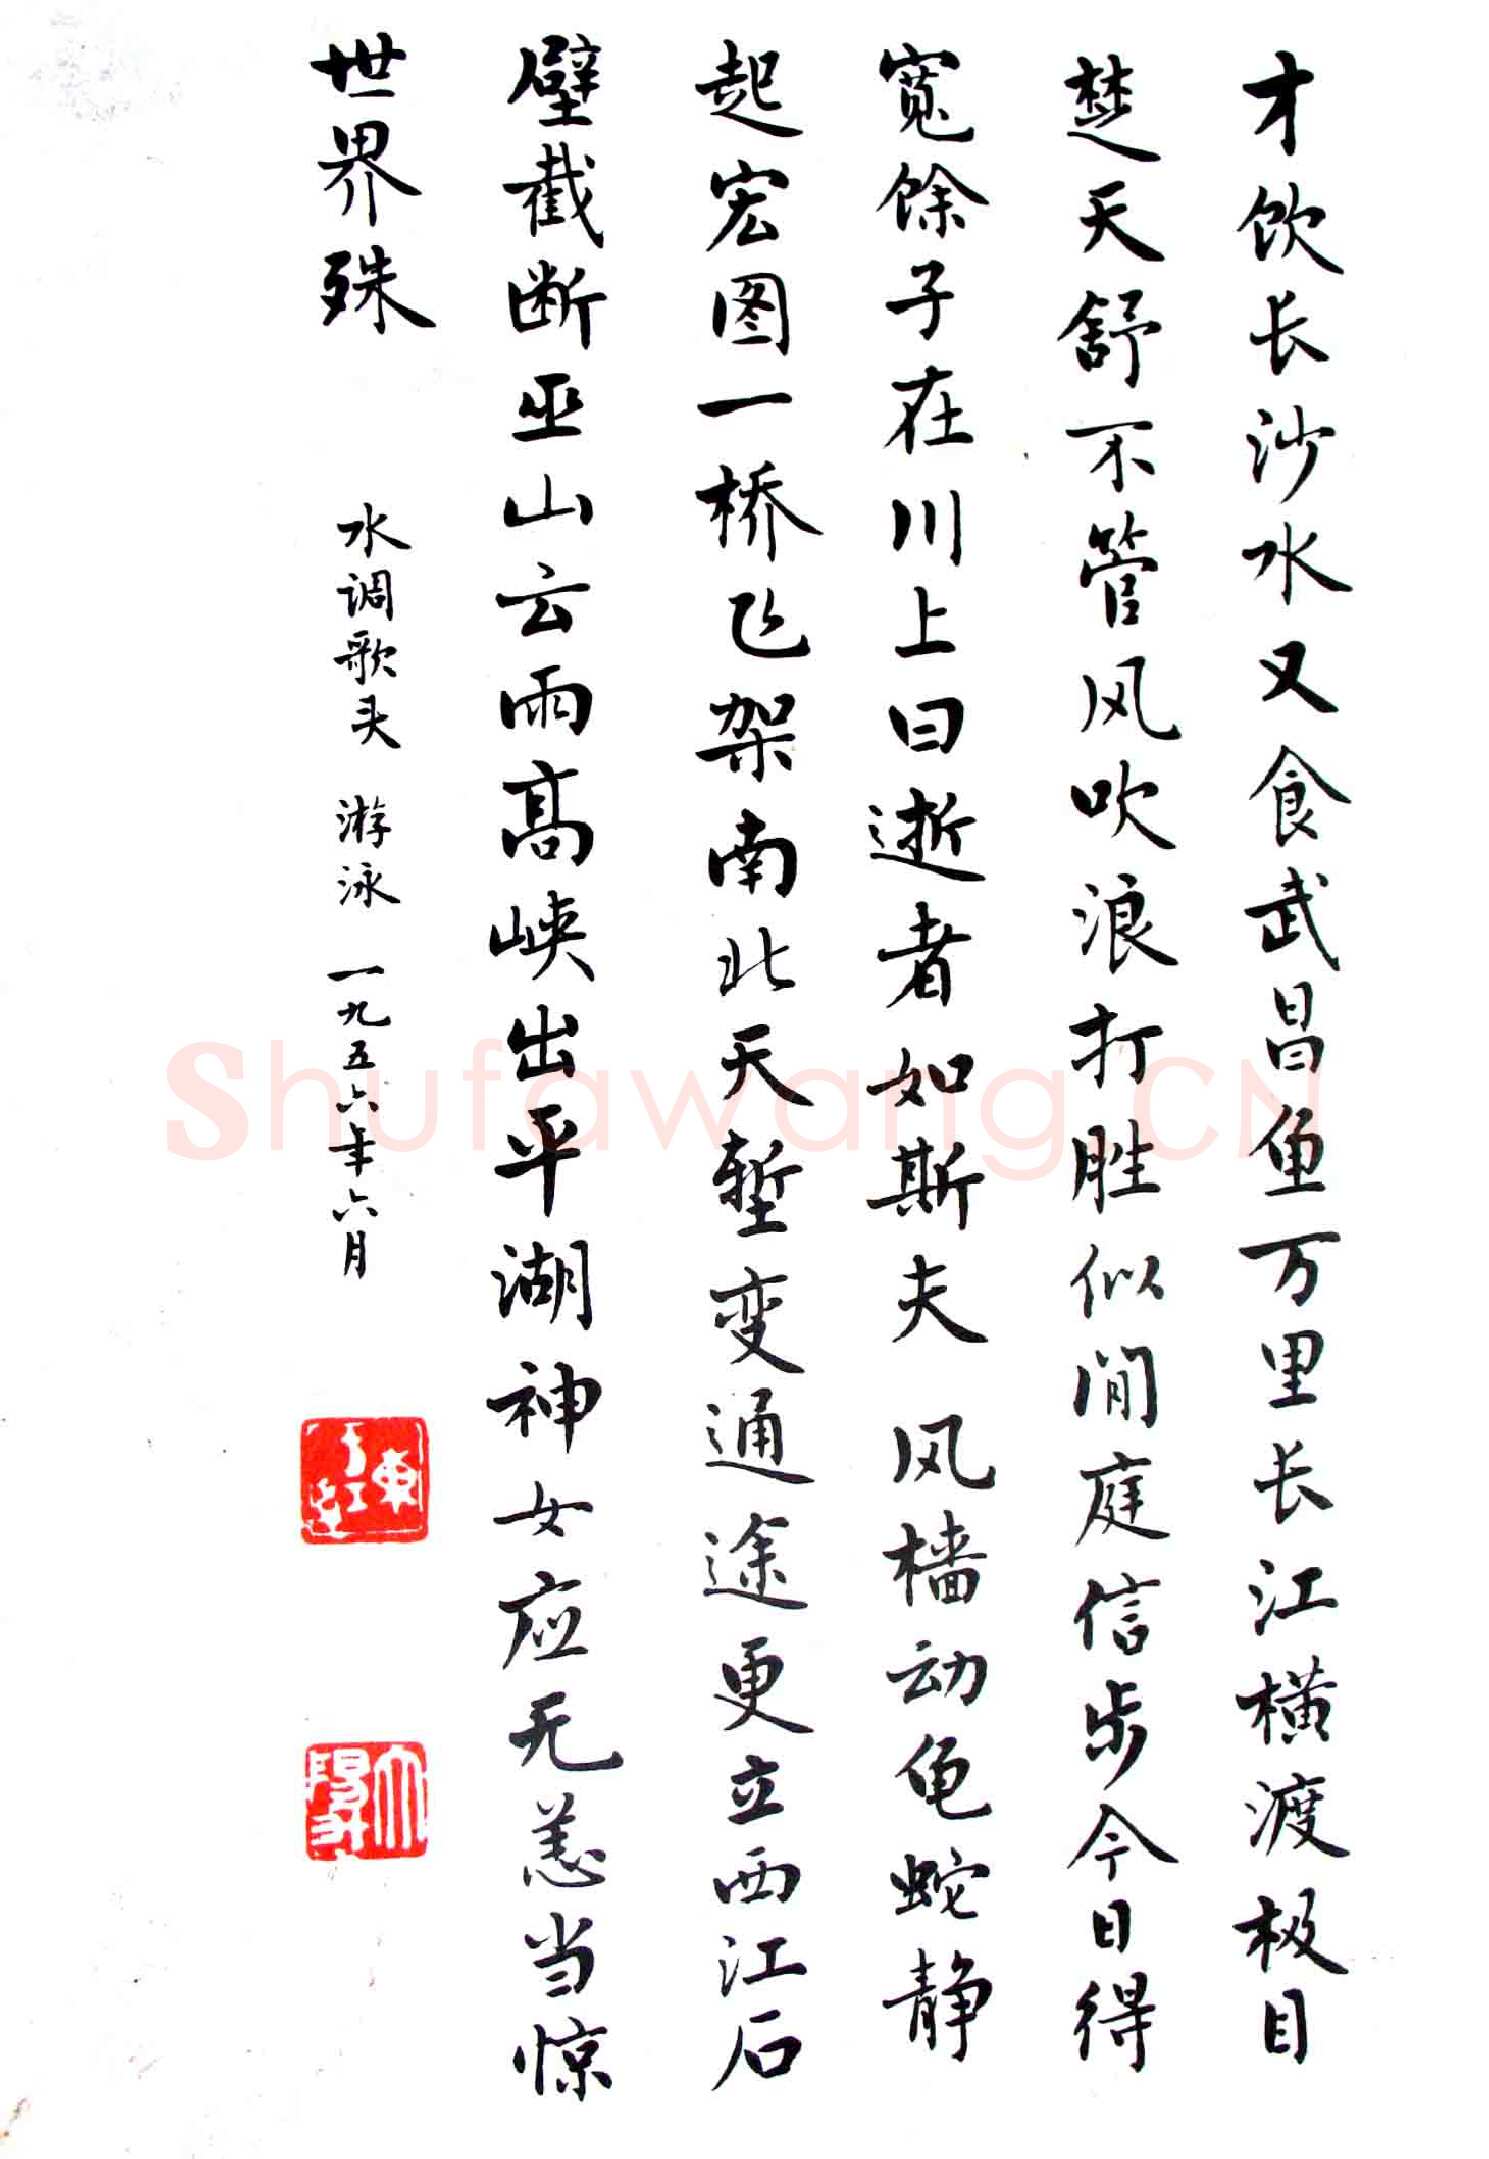 才饮长沙水又食武昌鱼万里长江横渡极目
楚天舒不管风吹浪打胜似闲庭信步今日得
宽馀子在川上曰逝者如斯夫 风樯动龟蛇静
起宏图一桥飞架南北天堑变通途更立西江石
壁截断巫山云雨高峡出平湖神女应无恙当惊
世界殊
水调歌头 游泳 一九五六年六月
Shufawang.CN